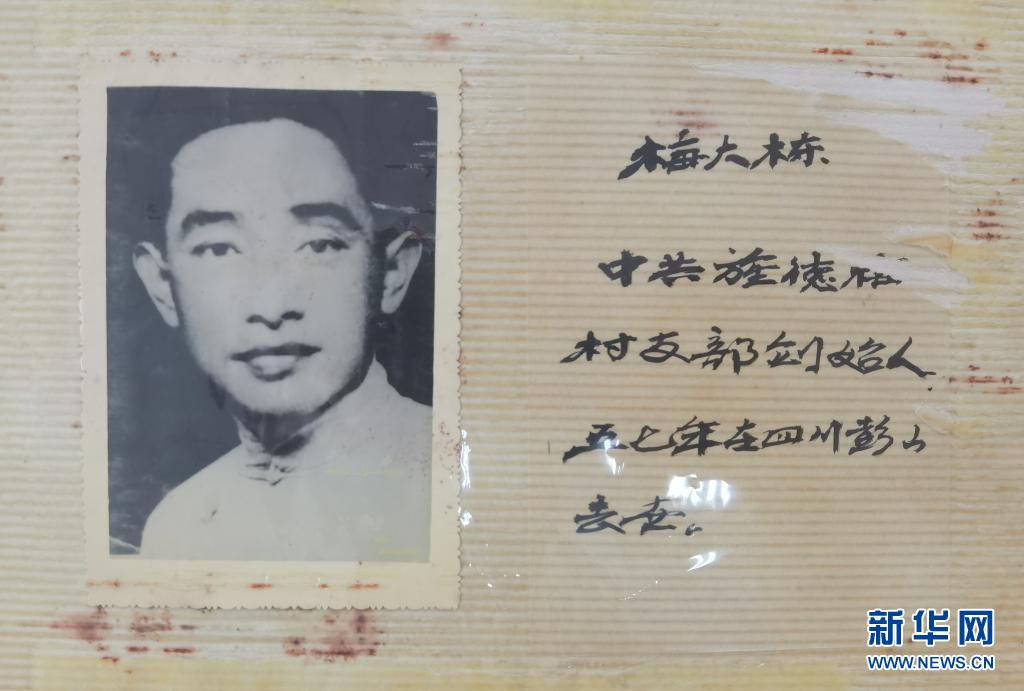 梅大栋
中共旌德板
村支部创始人
五七年在四川彭山
去世。
新华网
WWW.NEWS.CN